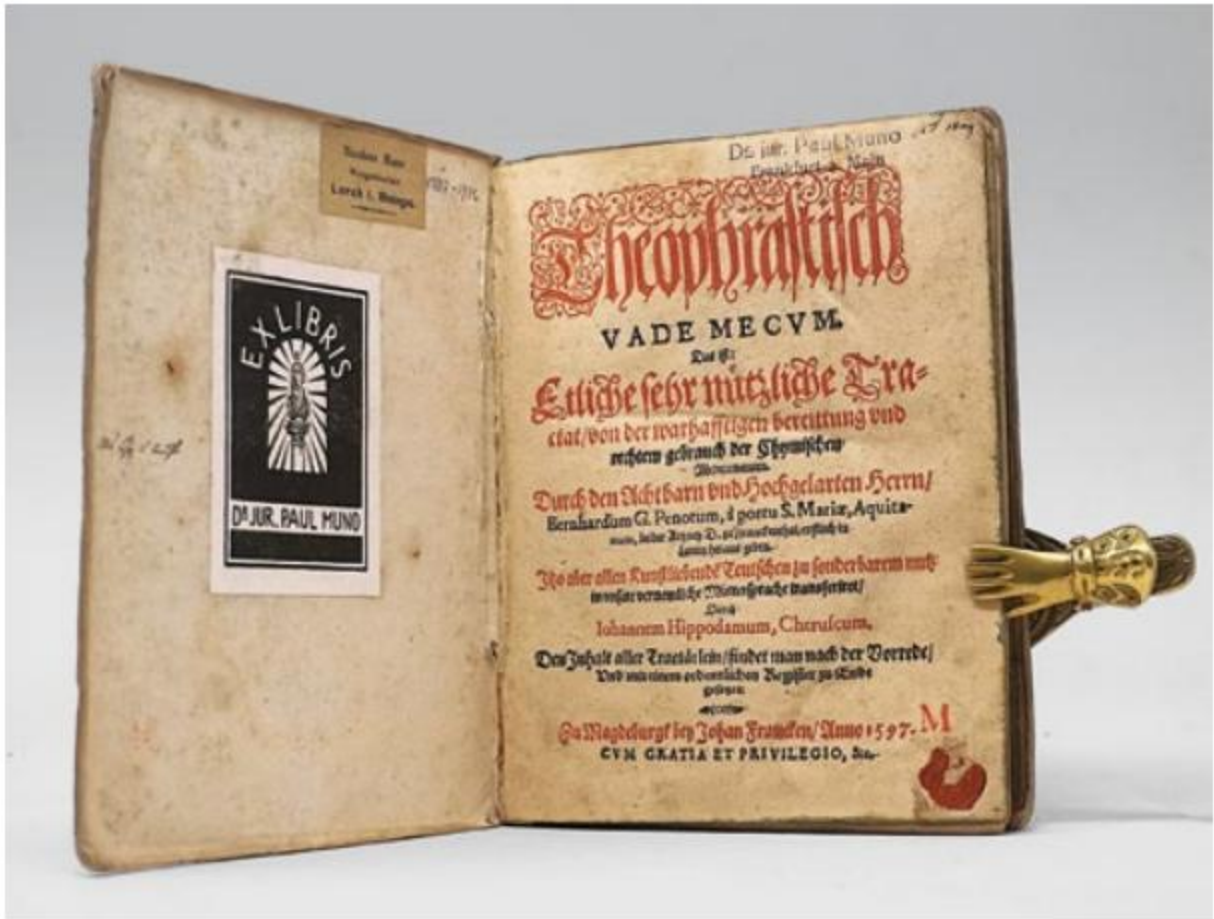 Lorch i.
EX LIBRIS
DR JUR. PAUL MUNO
Dr. jur. Paul Muno
Frankfurt a. Main
Theophrastisch
VADE MECVM.
Das ist:
Etliche sehr nützliche Tra-
ctat/von der warhafftigen bereittung vnd
rechtem gebrauch der Chymischen
Durch den Achtbarn vnd Hochgelarten Herrn/
Bernhardum G. Penotum, à portu S. Mariæ, Aquita-
Itzo aber allen Kunstliebende Teutschen zu sonderbarem nutz
in vnsere vernemliche Muttersprache transferiret/
Durch
Iohannem Hippodamum, Cheruscum.
Den Inhalt aller Tractätlein/findet man nach der Vorrede/
Vnd mit einem ordentlichen Register zu Ende
Zu Magdeburgk bey Johan Francken/Anno 1597.
M
CVM GRATIA ET PRIVILEGIO, &c.